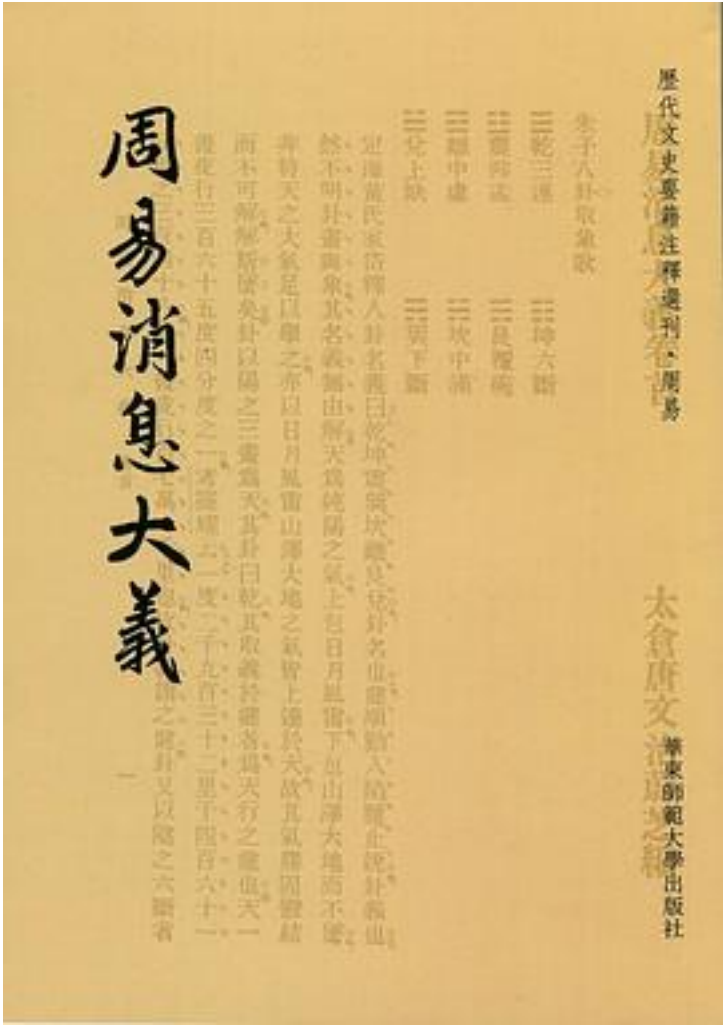 歷代文史要籍注釋選刊·周易
華東師範大學出版社
周易消息大義
周易消息大義卷首
太倉唐文治蔚芝編
朱子八卦取象歌
☰乾三連 ☷坤六斷
☳震仰盂 ☶艮覆碗
☲離中虛 ☵坎中滿
☱兌上缺 ☴巽下斷
定海黃氏家岱釋八卦名義曰乾坤震巽坎離艮兌卦名也健順動入陷麗止說卦義也
然不明卦畫與象其名義無由解天爲純陽之氣上包日月風雷下並山澤大地而不墜
非特天之大氣足以舉之亦以日月風雷山澤大地之氣皆上達於天故其氣膠固鬱結
而不可解解斯墜矣卦以陽之三畫爲天其卦曰乾其取義於健者揭天行之健也天一
晝夜行三百六十五度四分度之一一度二千九百三十二里千四百六十一
之健卦又以陰之六斷者
一